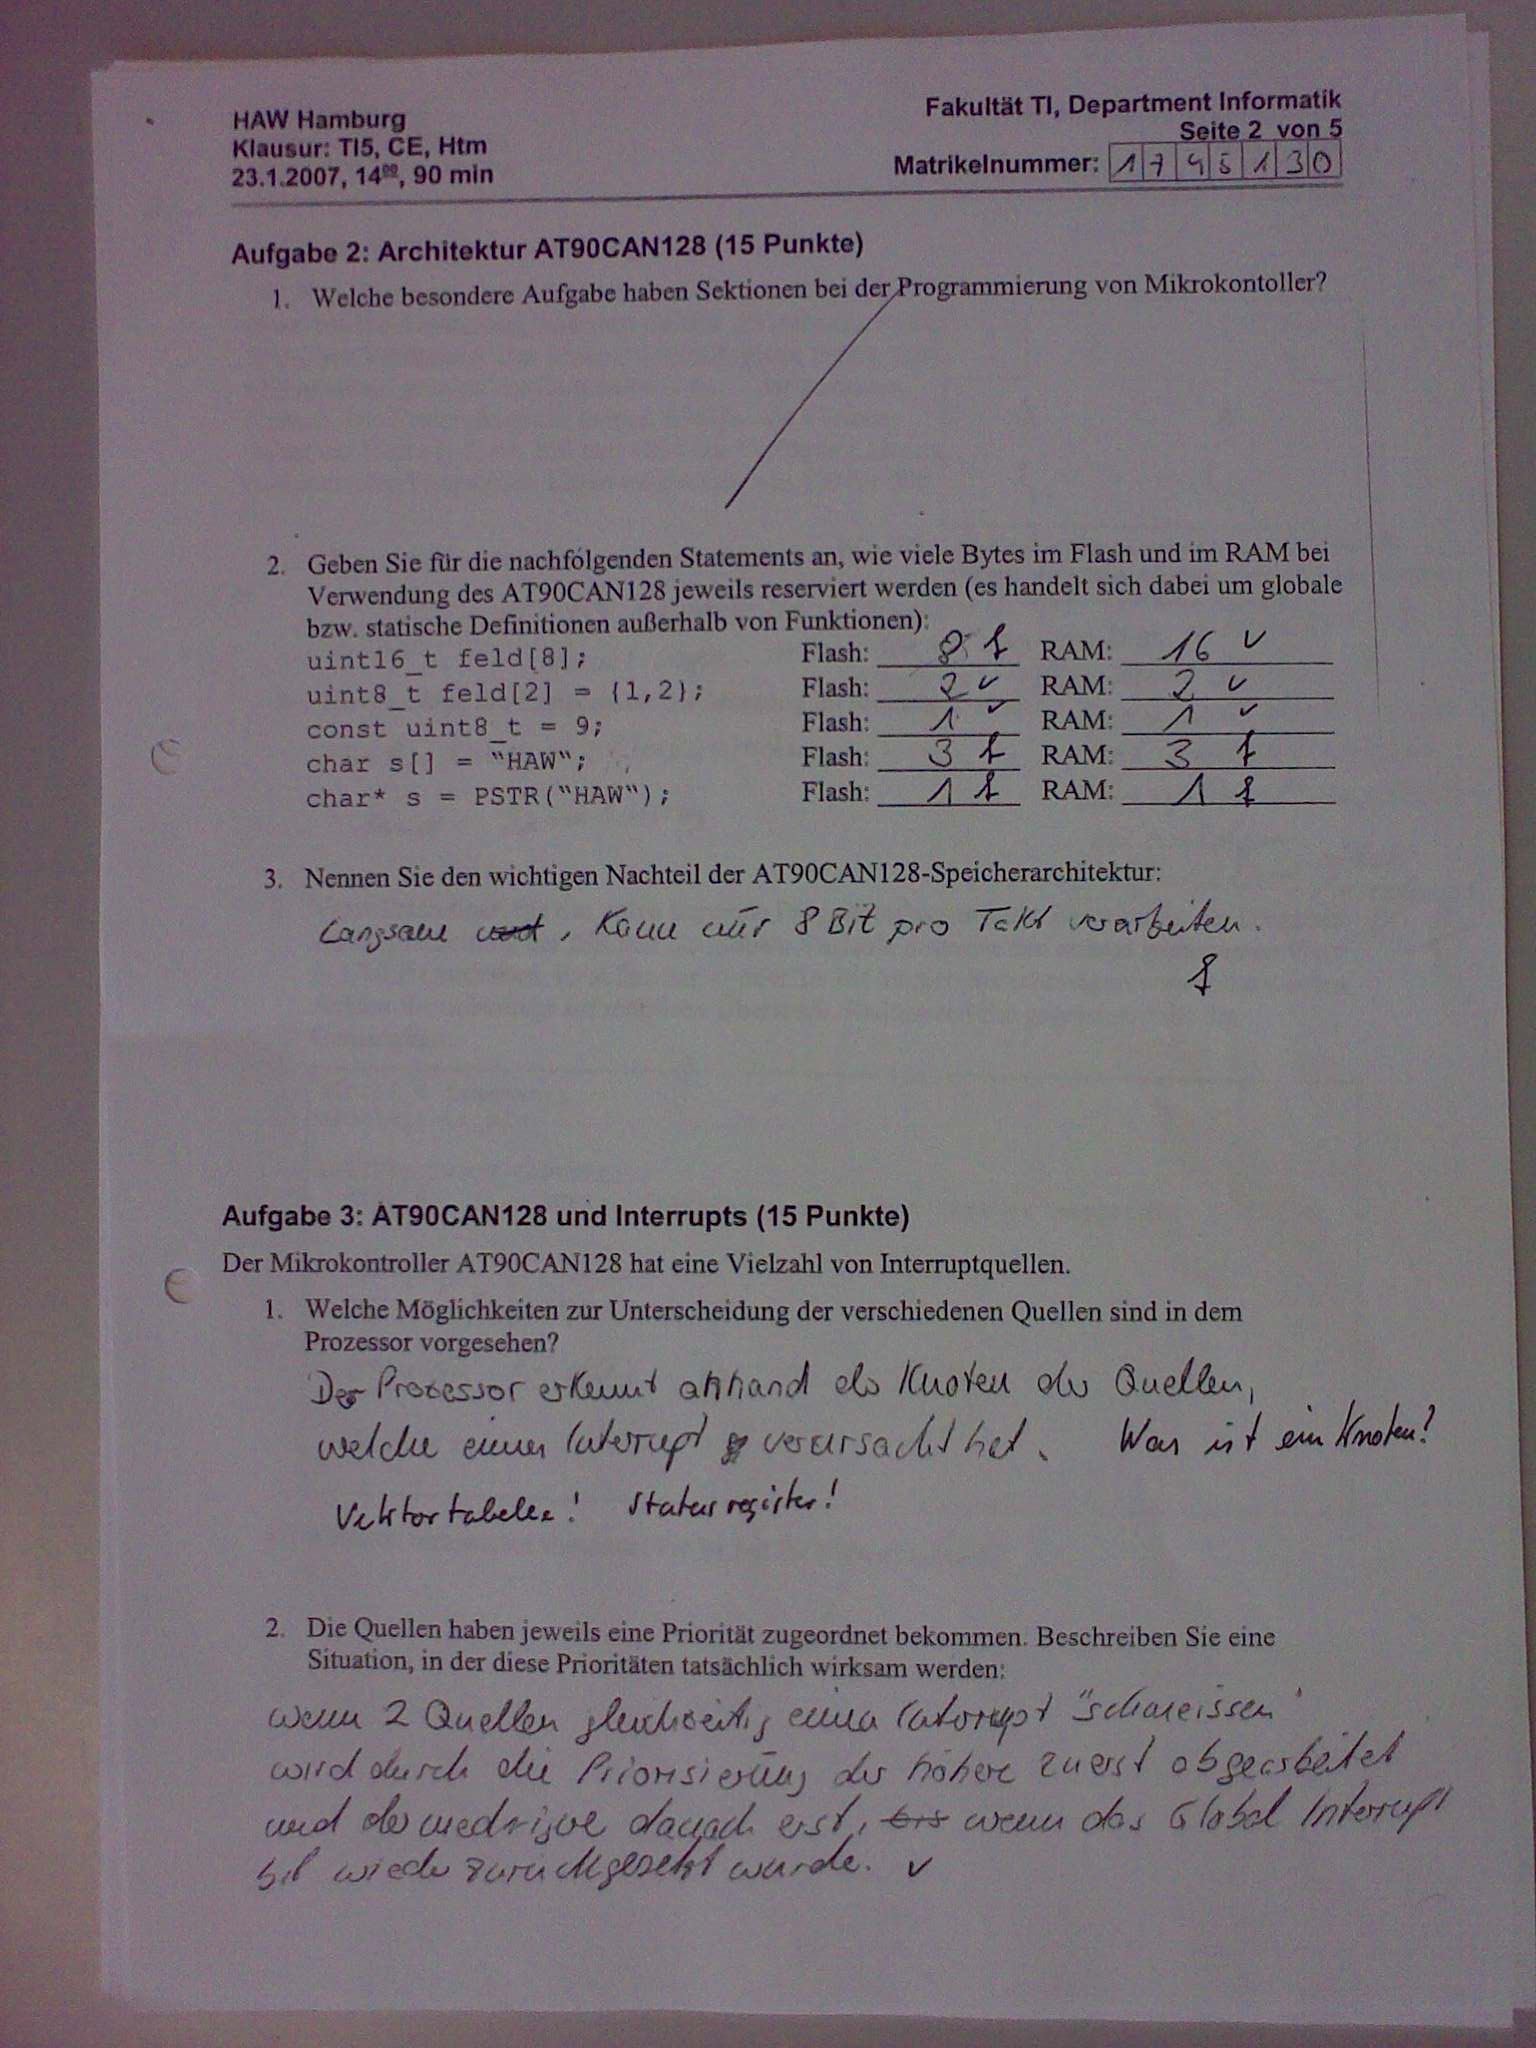 HAW Hamburg
Klausur: TI5, CE, Htm
23.1.2007, 14⁰⁰, 90 min
Fakultät TI, Department Informatik
Seite 2 von 5
Matrikelnummer: 1 7 4 5 1 3 0
Aufgabe 2: Architektur AT90CAN128 (15 Punkte)
1. Welche besondere Aufgabe haben Sektionen bei der Programmierung von Mikrokontoller?
2. Geben Sie für die nachfolgenden Statements an, wie viele Bytes im Flash und im RAM bei
Verwendung des AT90CAN128 jeweils reserviert werden (es handelt sich dabei um globale
bzw. statische Definitionen außerhalb von Funktionen):
uint16_t feld[8]; Flash: 8 f RAM: 16 ✓
uint8_t feld[2] = {1,2}; Flash: 2 ✓ RAM: 2 ✓
const uint8_t = 9; Flash: 1 ✓ RAM: 1 ✓
char s[] = "HAW"; Flash: 3 f RAM: 3 f
char* s = PSTR("HAW"); Flash: 1 f RAM: 1 f
3. Nennen Sie den wichtigen Nachteil der AT90CAN128-Speicherarchitektur:
Langsam, Kann nur 8 Bit pro Takt verarbeiten.
f
Aufgabe 3: AT90CAN128 und Interrupts (15 Punkte)
Der Mikrokontroller AT90CAN128 hat eine Vielzahl von Interruptquellen.
1. Welche Möglichkeiten zur Unterscheidung der verschiedenen Quellen sind in dem
Prozessor vorgesehen?
Der Prozessor erkennt anhand der Knoten der Quellen,
welche einen Interrupt verursacht hat. Was ist ein Knoten?
Vektortabelle! Statusregister!
2. Die Quellen haben jeweils eine Priorität zugeordnet bekommen. Beschreiben Sie eine
Situation, in der diese Prioritäten tatsächlich wirksam werden:
wenn 2 Quellen gleichzeitig einen Interrupt "schmeissen"
wird durch die Priorisierung der höhere zuerst abgearbeitet
und der niedrigere danach erst, wenn das Global Interrupt
bit wieder zurückgesetzt wurde. ✓